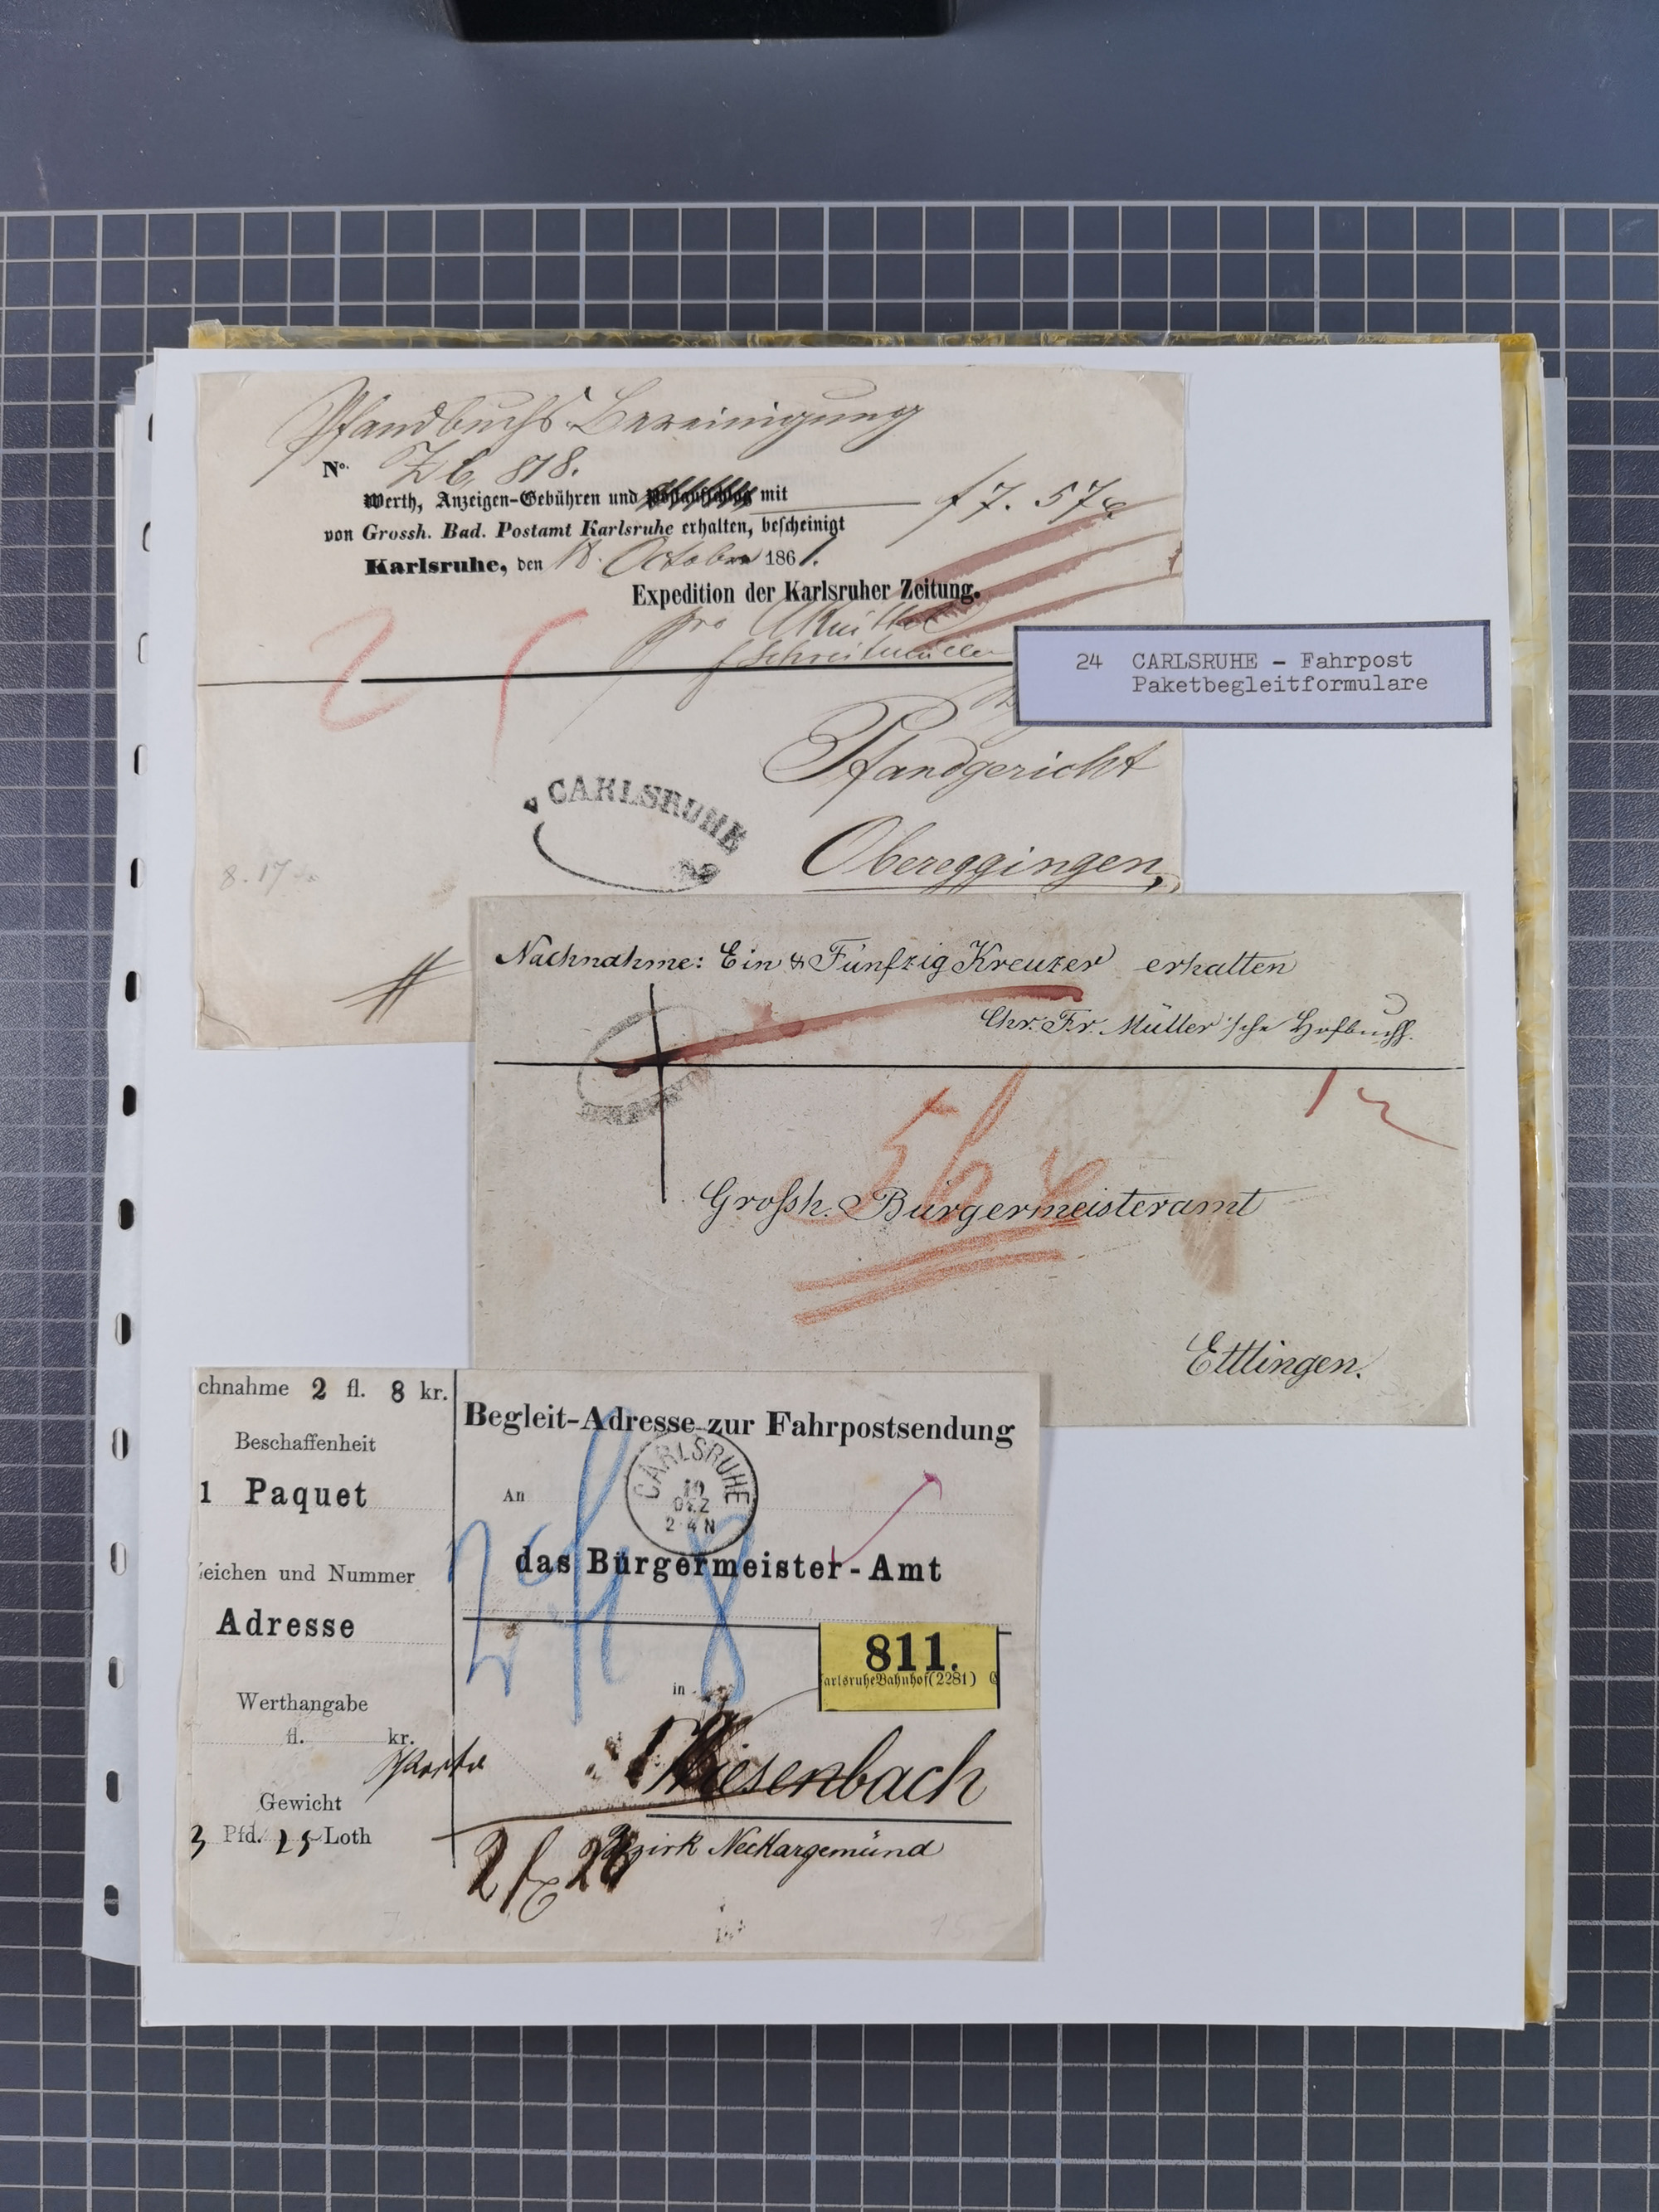 Pfandbuchs-Bereinigung
No. Z b, 818.
Werth, Anzeigen-Gebühren und mit f 7. 57 x
von Grossh. Bad. Postamt Karlsruhe erhalten, bescheinigt
Karlsruhe, den 18. October 1861.
Expedition der Karlsruher Zeitung.
pro Müller
24 CARLSRUHE - Fahrpost
Paketbegleitformulare
Pfandgericht
CARLSRUHE
Obereggingen,
8.17
Nachnahme: Ein & Fünfzig Kreuzer erhalten
Chr. Fr. Müller'sche Hofbuchh.
12
56 x
Grossh. Bürgermeisteramt
Ettlingen.
chnahme 2 fl. 8 kr.
Beschaffenheit
1 Paquet
Zeichen und Nummer
Adresse
Werthangabe
fl. kr.
Porto
Gewicht
3 Pfd. 25 Loth
Begleit-Adresse zur Fahrpostsendung
CARLSRUHE
10
DEZ
2-4 N
An
das Bürgermeister-Amt
2 f 8
811.
arlsruhe Bahnhof (2281)
in
Wiesenbach
Bezirk Neckargemünd
2 f 26
15.-